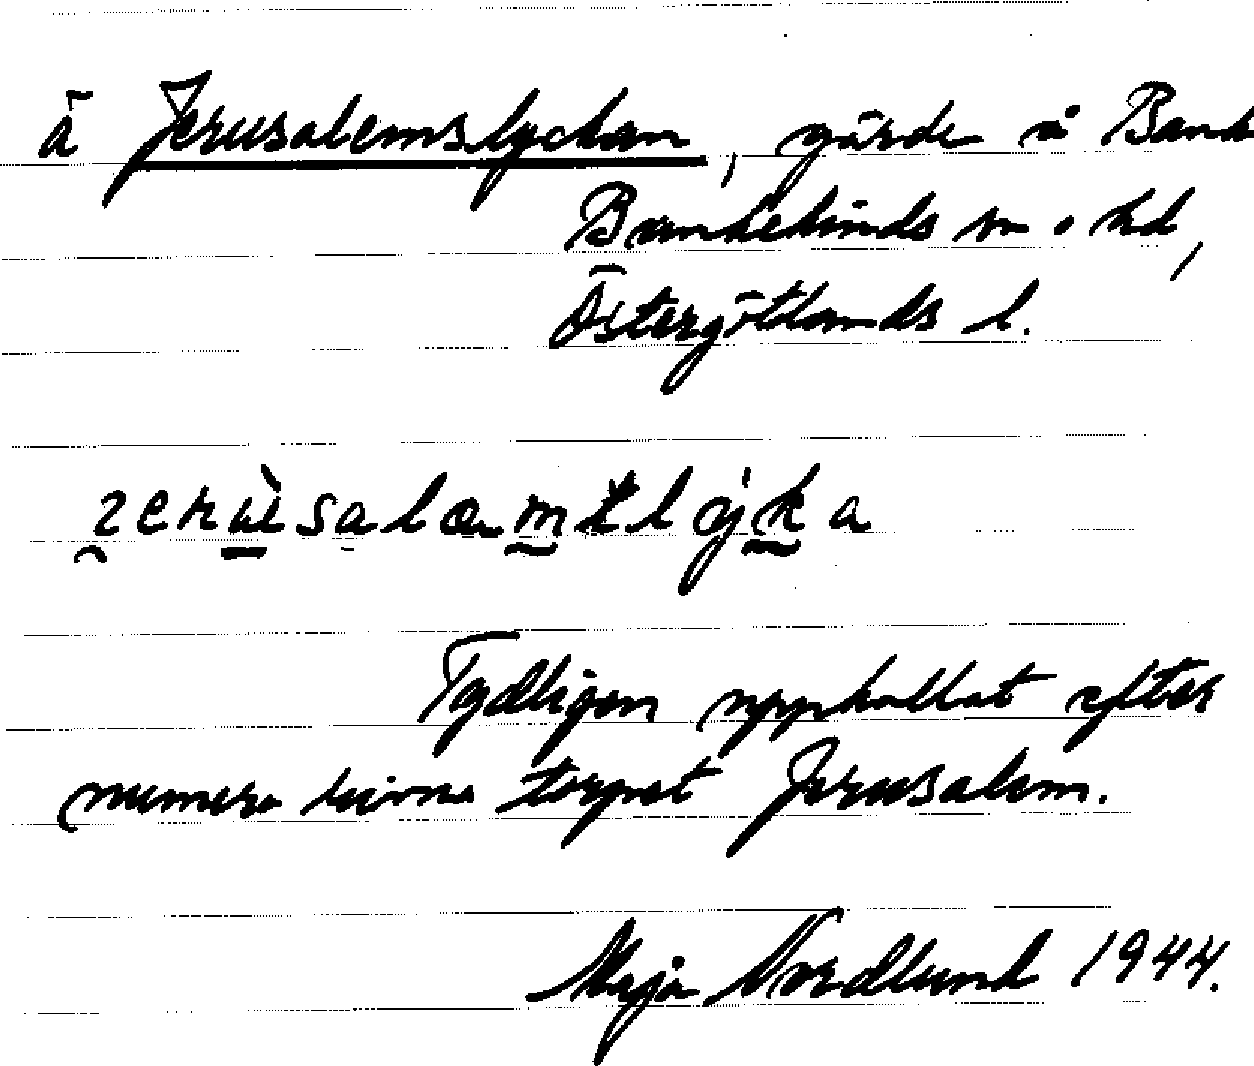 ā Jerusalemslyckan, gärde å Band
Bankekinds sn o hd,
Östergötlands l.
Tydligen uppkallat efter
numera rivna torpet Jerusalem.
Maja Nordlund 1944.